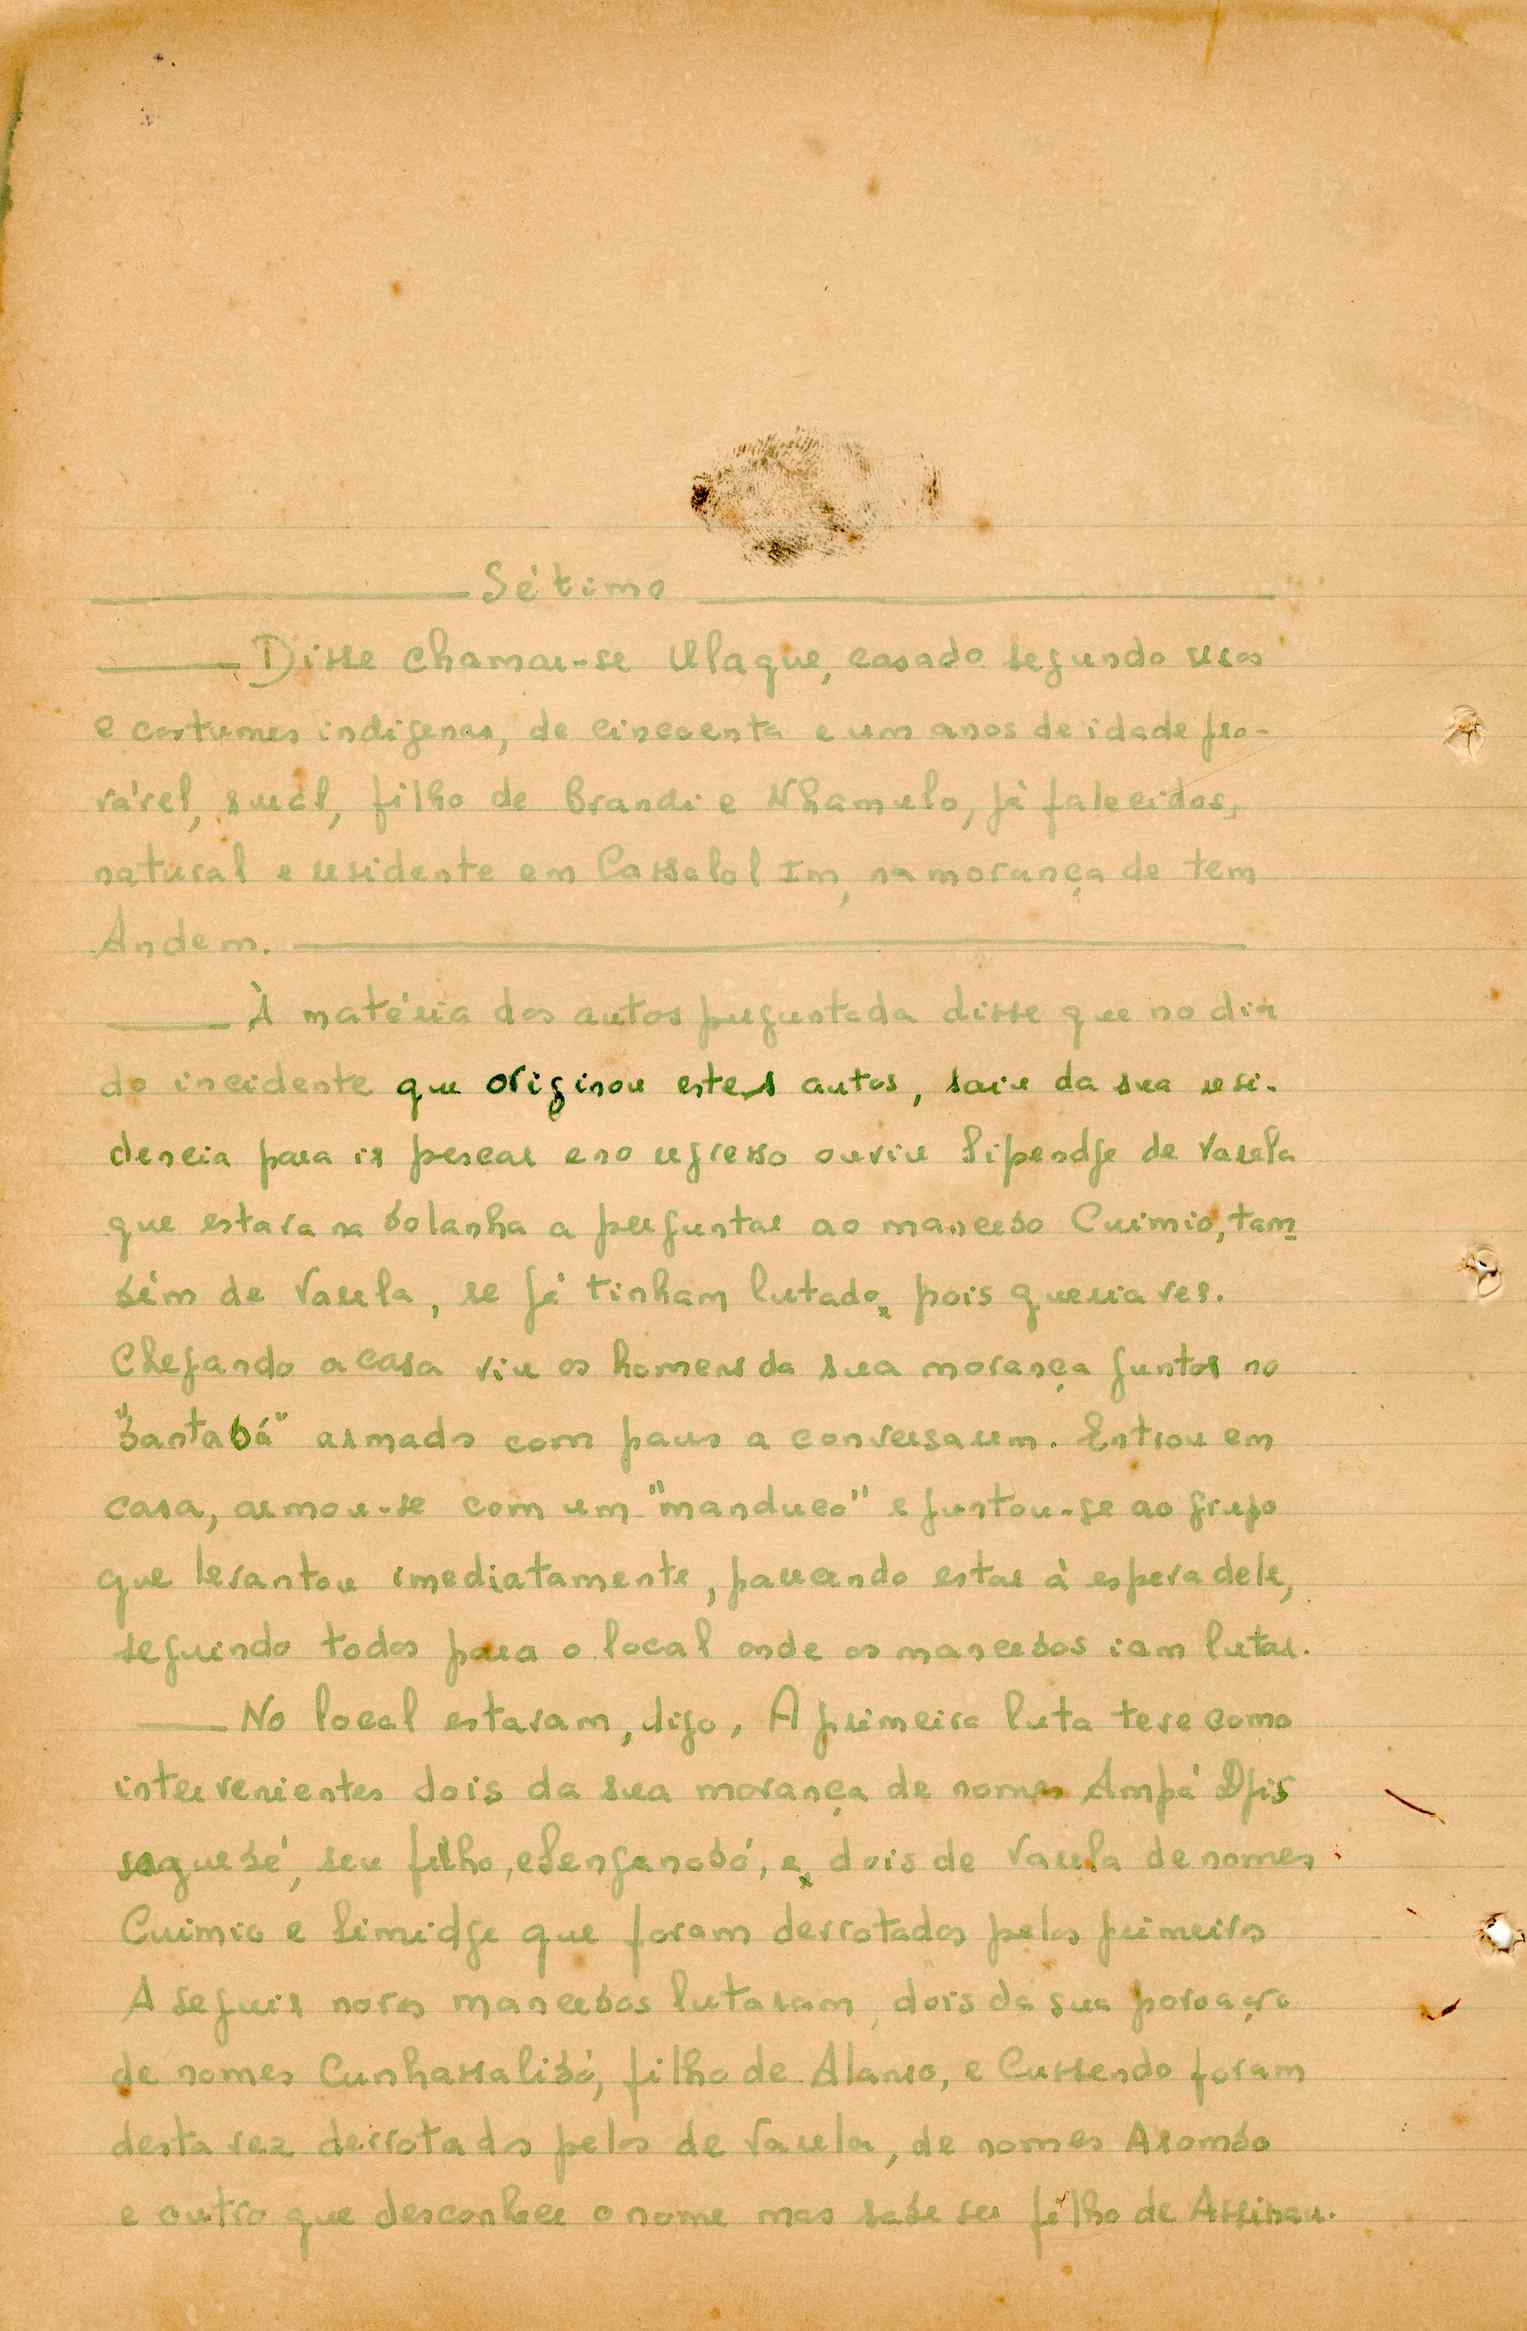 Sétimo
Disse chamar-se Ulaque, casado segundo usos
e costumes indigenas, de cincoenta e um anos de idade pro-
vável, sual, filho de Brandi e Nhamulo, já falecidos,
natural e residente em Cassalol Im, na morança de tem
Andem.
À matéria dos autos perguntada disse que no dia
do incidente que originou estes autos, saiu da sua resi-
dencia para ir pescar e no regresso ouviu Sipendje de Varela
que estava na bolanha a perguntar ao mancebo Cuimio, tam
bém de Varela, se já tinham lutado, pois queria ver.
Chegando a casa viu os homens da sua morança juntos no
"bantabá" armados com paus a conversarem. Entrou em
casa, armou-se com um "manduco" e juntou-se ao grupo
que levantou imediatamente, parecendo estar à espera dele,
seguindo todos para o local onde os mancebos iam lutar.
No local estavam, digo, A primeira luta teve como
intervenientes dois da sua morança de nomes Ampá Djis
saguebé, seu filho, e Benganobó, e, dois de Varela de nomes
Cuimio e Simidje que foram derrotados pelos primeiros
A seguir novos mancebos lutaram, dois da sua povoação
de nomes Cunhassalibó, filho de Alanso, e Cussendo foram
desta vez derrotados pelos de Varela, de nomes Arombo
e outro que desconhece o nome mas sabe ser filho de